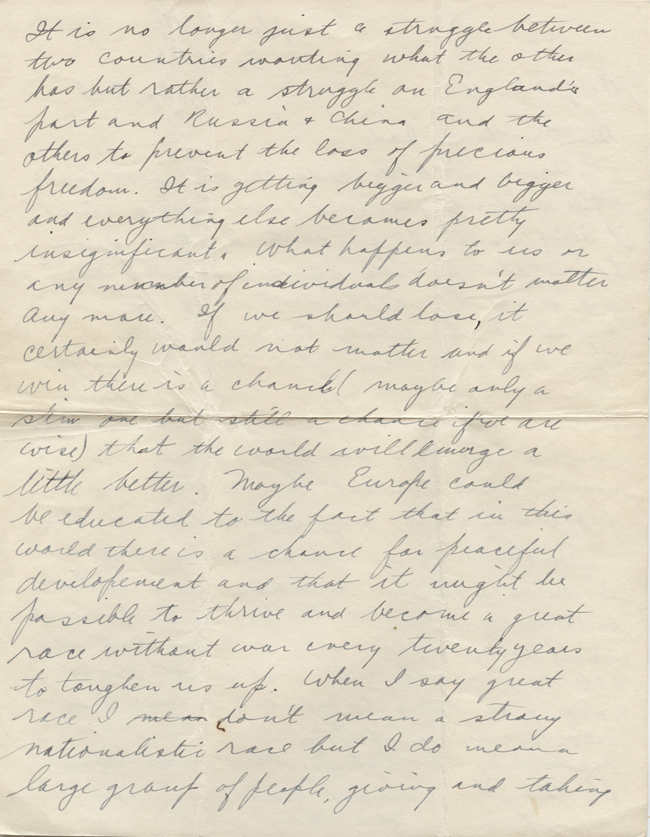 It is no longer just a struggle between
two countries wanting what the other
has but rather a struggle on England's
part and Russia + China and the
others to prevent the loss of precious
freedom. It is getting bigger and bigger
and everything else becomes pretty
insignificant. What happens to us or
any number of individuals doesn't matter
any more. If we should lose, it
certainly would not matter and if we
win there is a chance (maybe only a
slim one but still a chance if we are
wise) that the world will emerge a
little better. Maybe Europe could
be educated to the fact that in this
world there is a chance for peaceful
developement and that it might be
possible to thrive and become a great
race without war every twenty years
to toughen us up. When I say great
race I mean don't mean a strong
nationalistic race but I do mean a
large group of people, giving and taking